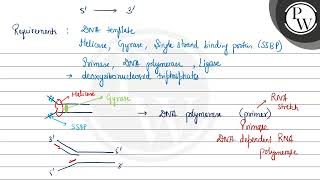 PW
5' → 3'
Requirements : DNA template
Helicase, Gyrase, Single strand binding protein (SSBP)
Primase, DNA polymerase, Ligase
→ deoxyribonucleosid triphosphates
Helicase
Gyrase
SSBP
→ DNA polymerase (primer)
RNA stretch
Primase
DNA dependent RNA
polymerase
5'
3'
5'
3'